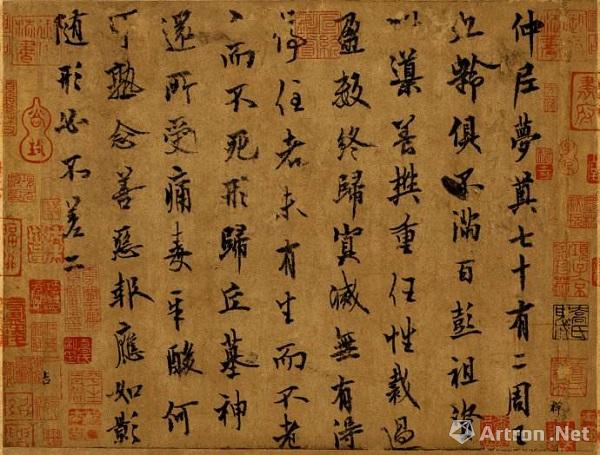 仲尼夢奠七十有二周王
九齡俱不滿百彭祖資
以導善樊重任性裁過
盈數終歸冥滅無有得
停住者未有生而不老
〻而不死形歸丘墓神
還所受痛毒辛酸何
可熟念善惡報應如影
隨形必不差二
Artron.Net